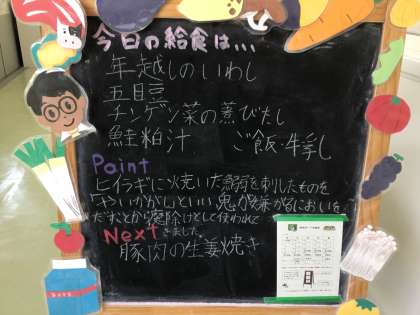 今日の給食は...
年越しのいわし
五目豆
チンゲン菜の煮びたし
鮭粕汁　ご飯・牛乳
Point
ヒイラギに焼いた鰯を刺したものを
やいかがしといい、鬼が嫌がるにおいを
だすことから魔除けとして使われて
きました。
Next
豚肉の生姜焼き